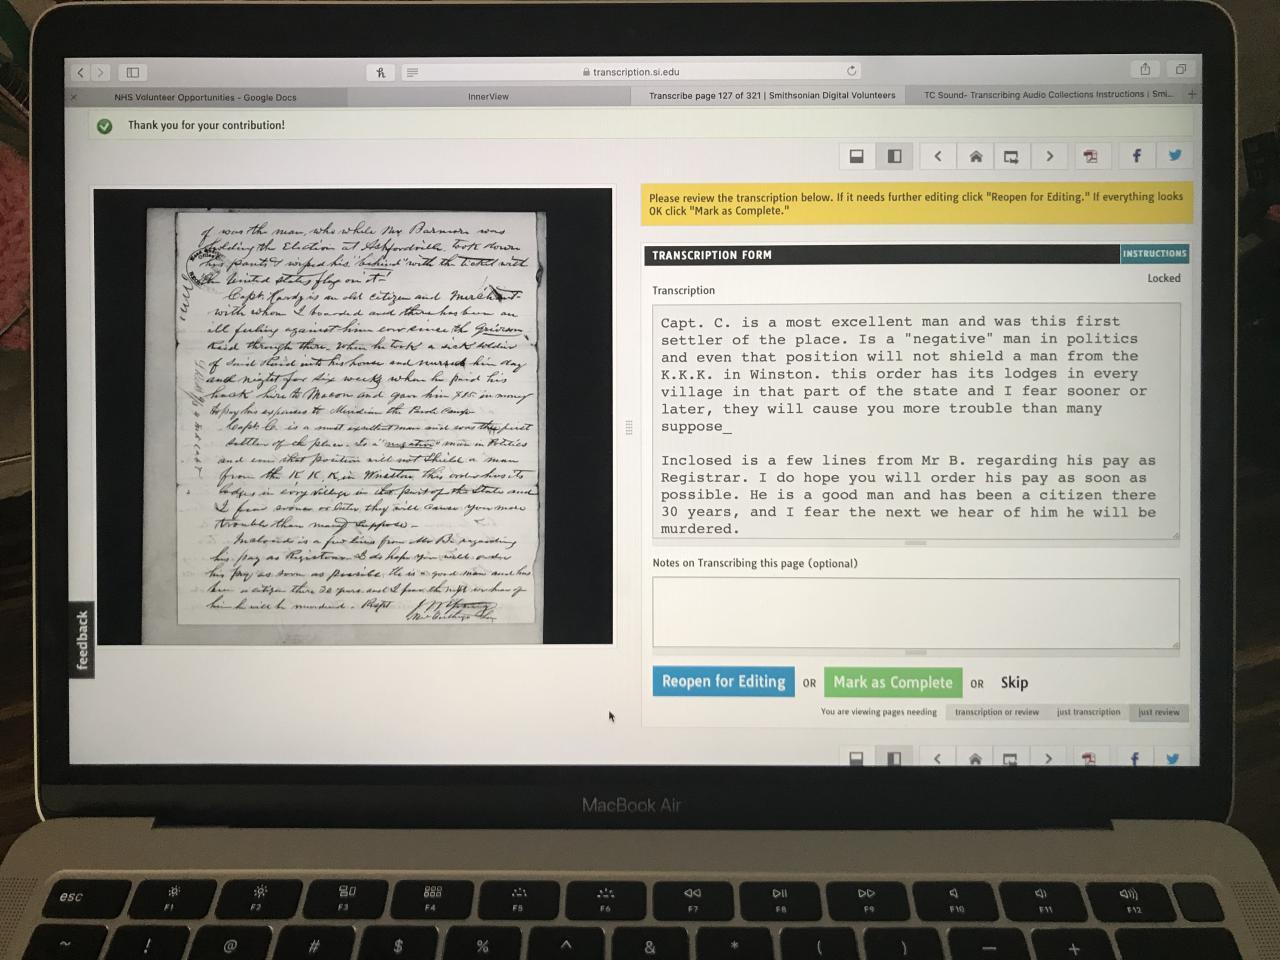 transcription.si.edu
NHS Volunteer Opportunities - Google Docs
InnerView
Transcribe page 127 of 321 | Smithsonian Digital Volunteers
TC Sound- Transcribing Audio Collections Instructions | Smi...
Thank you for your contribution!
Please review the transcription below. If it needs further editing click "Reopen for Editing." If everything looks
OK click "Mark as Complete."
TRANSCRIPTION FORM
INSTRUCTIONS
Locked
Transcription
Capt. C. is a most excellent man and was this first
settler of the place. Is a "negative" man in politics
and even that position will not shield a man from the
K.K.K. in Winston. this order has its lodges in every
village in that part of the state and I fear sooner or
later, they will cause you more trouble than many
suppose_
Inclosed is a few lines from Mr B. regarding his pay as
Registrar. I do hope you will order his pay as soon as
possible. He is a good man and has been a citizen there
30 years, and I fear the next we hear of him he will be
murdered.
Notes on Transcribing this page (optional)
Reopen for Editing OR Mark as Complete OR Skip
You are viewing pages needing transcription or review just transcription just review
feedback
of was the man, who while Mr Barnum was
holding the Election at Ashfordville, took down
his pants & wiped his "behind" with the ticket with
the United States flag on it-
Capt. Hardy is an old citizen and Merchant-
with whom I boarded and there has been an
ill feeling against him ever since the Grierson
Raid through there. When he took a sick soldier
of Said Raid into his house and nursed him day
and night for six weeks when he paid his
hack hire to Macon and gave him $15 in money
to pay his expenses to Meridian the Parole Camp-
Capt. C. is a most excellent man and was this first
settler of the place. Is a "negative" man in Politics
and even that position will not Shield a man
from the K. K. K. in Winston this order has its
lodges in every village in that part of the State and
I fear sooner or later, they will cause you more
trouble than many suppose-
Inclosed is a few lines from Mr B. regarding
his pay as Registrar. I do hope you will order
his pay as soon as possible. He is a good man and has
been a citizen there 30 years and I fear the next we hear of
him he will be murdered.
MacBook Air
esc F1 F2 F3 F4 F5 F6 F7 F8 F9 F10 F11 F12
~ ! @ # $ % ^ & * ( ) — +